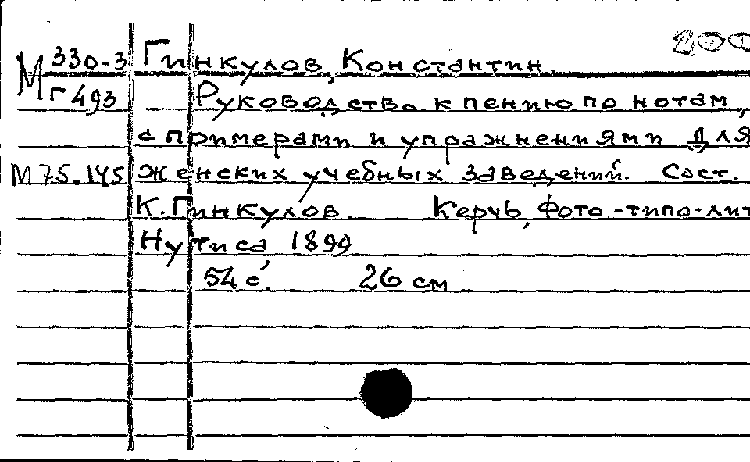 200
М 330-3 Гинкулов, Константин
Г 493 Руководство к пению по нотам,
с примерами и упражнениями для
М 75.145 женских учебных заведений. Сост.
К. Гинкулов. Керчь, Фото-типо-лит
Нутиса, 1899
54 с. 26 см